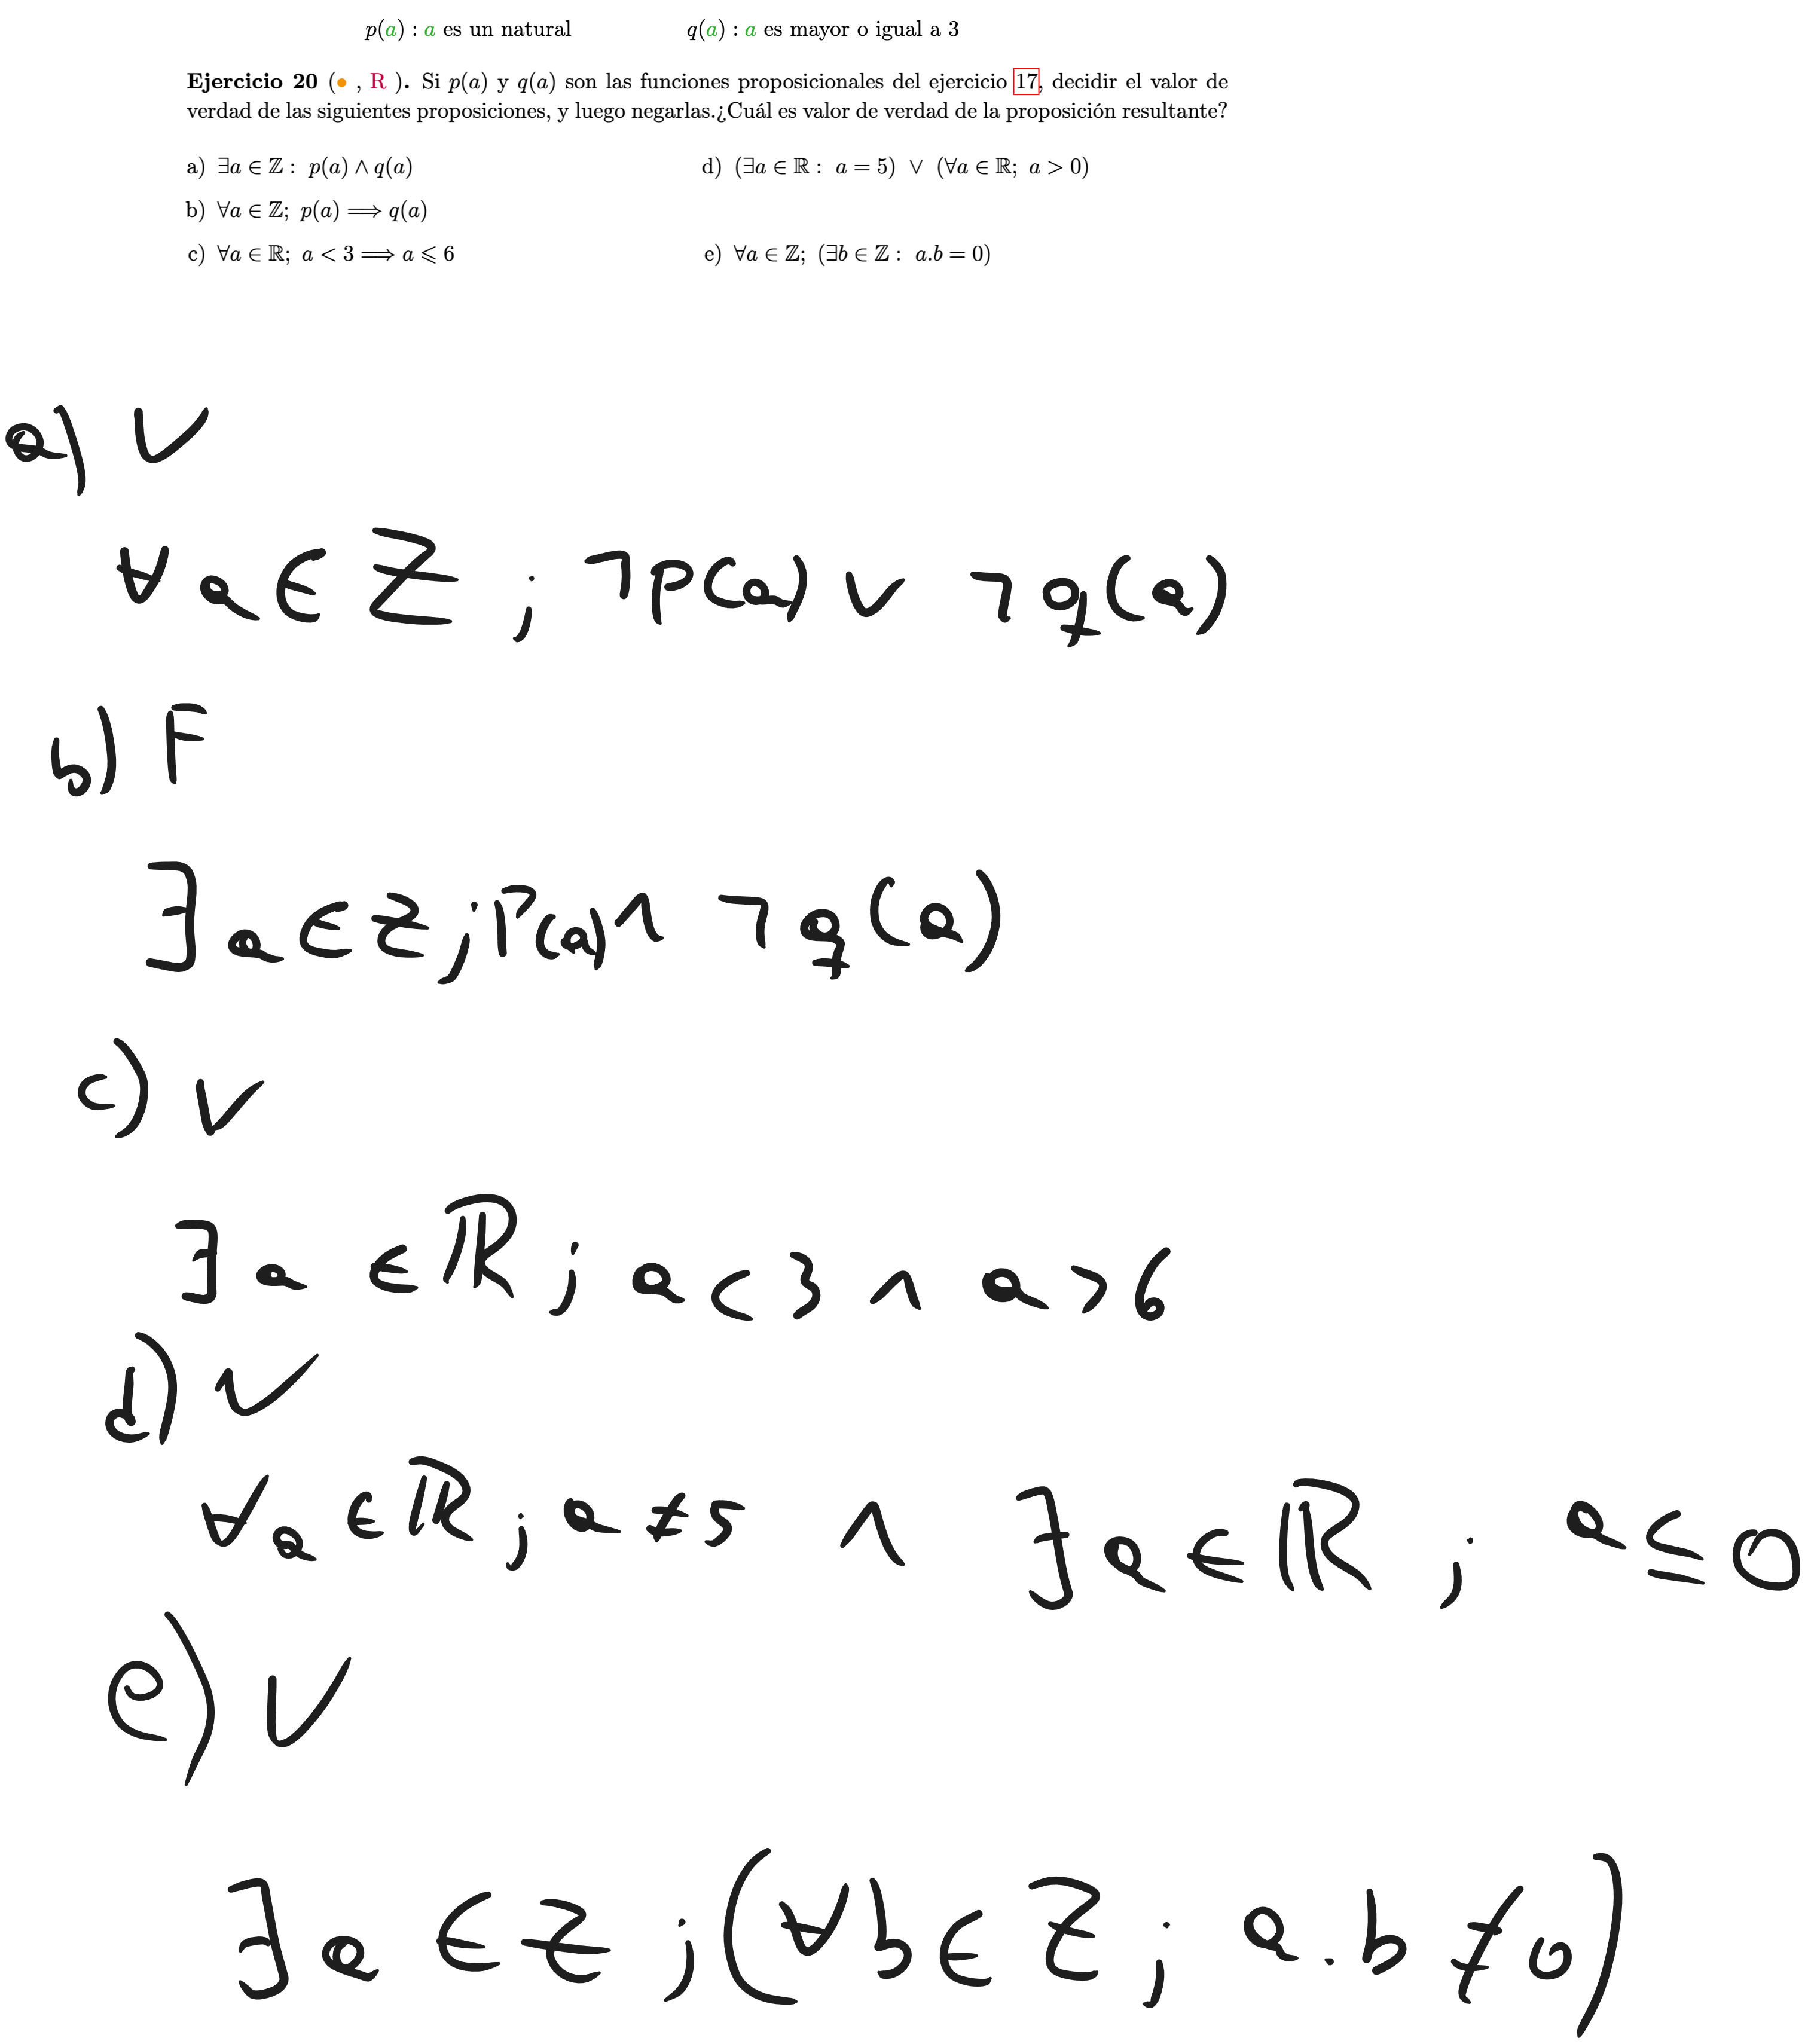 p(a) : a es un natural q(a) : a es mayor o igual a 3
Ejercicio 20 (• , R ). Si p(a) y q(a) son las funciones proposicionales del ejercicio 17, decidir el valor de
verdad de las siguientes proposiciones, y luego negarlas.¿Cuál es valor de verdad de la proposición resultante?
a) ∃a ∈ ℤ : p(a) ∧ q(a)
d) (∃a ∈ ℝ : a = 5) ∨ (∀a ∈ ℝ; a > 0)
b) ∀a ∈ ℤ; p(a) ⟹ q(a)
c) ∀a ∈ ℝ; a < 3 ⟹ a ⩽ 6
e) ∀a ∈ ℤ; (∃b ∈ ℤ : a.b = 0)
a) V
∀ a ∈ Z ; ¬p(a) ∨ ¬q(a)
b) F
∃ a ∈ Z ; P(a) ∧ ¬q(a)
c) V
∃ a ∈ ℝ ; a < 3 ∧ a > 6
d) V
∀ a ∈ ℝ ; a ≠ 5 ∧ ∃ a ∈ ℝ ; a ≤ 0
e) V
∃ a ∈ Z ; (∀ b ∈ Z ; a . b ≠ 0)